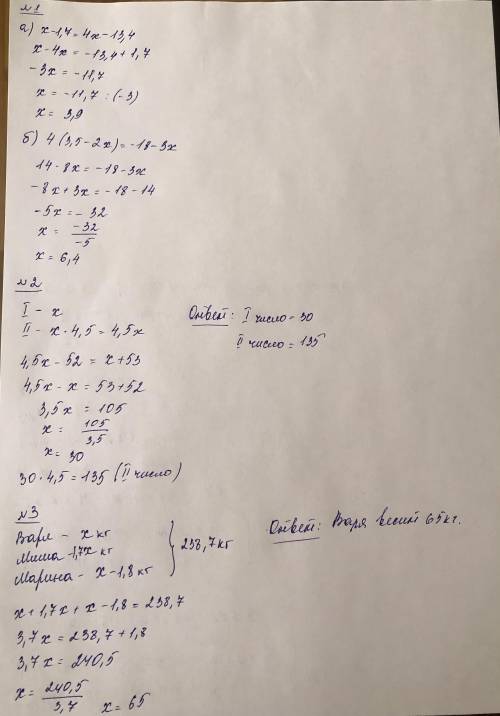 №1
а) x-1,7=4x-13,4
x-4x=-13,4+1,7
-3x=-11,7
x=-11,7:(-3)
x=3,9
б) 4(3,5-2x)=-18-3x
14-8x=-18-3x
-8x+3x=-18-14
-5x=-32
x=-32/-5
x=6,4
№2
I - x
II - x·4,5=4,5x
4,5x-52=x+53
4,5x-x=53+52
3,5x=105
x=105/3,5
x=30
30·4,5=135 (II число)
Ответ: I число=30
II число=135
№3
Варя - x кг
Миша-1,7x кг
Марина - x-1,8кг
} 238,7кг
x+1,7x+x-1,8=238,7
3,7x=238,7+1,8
3,7x=240,5
x=240,5/3,7 x=65
Ответ: Варя весит 65кг.